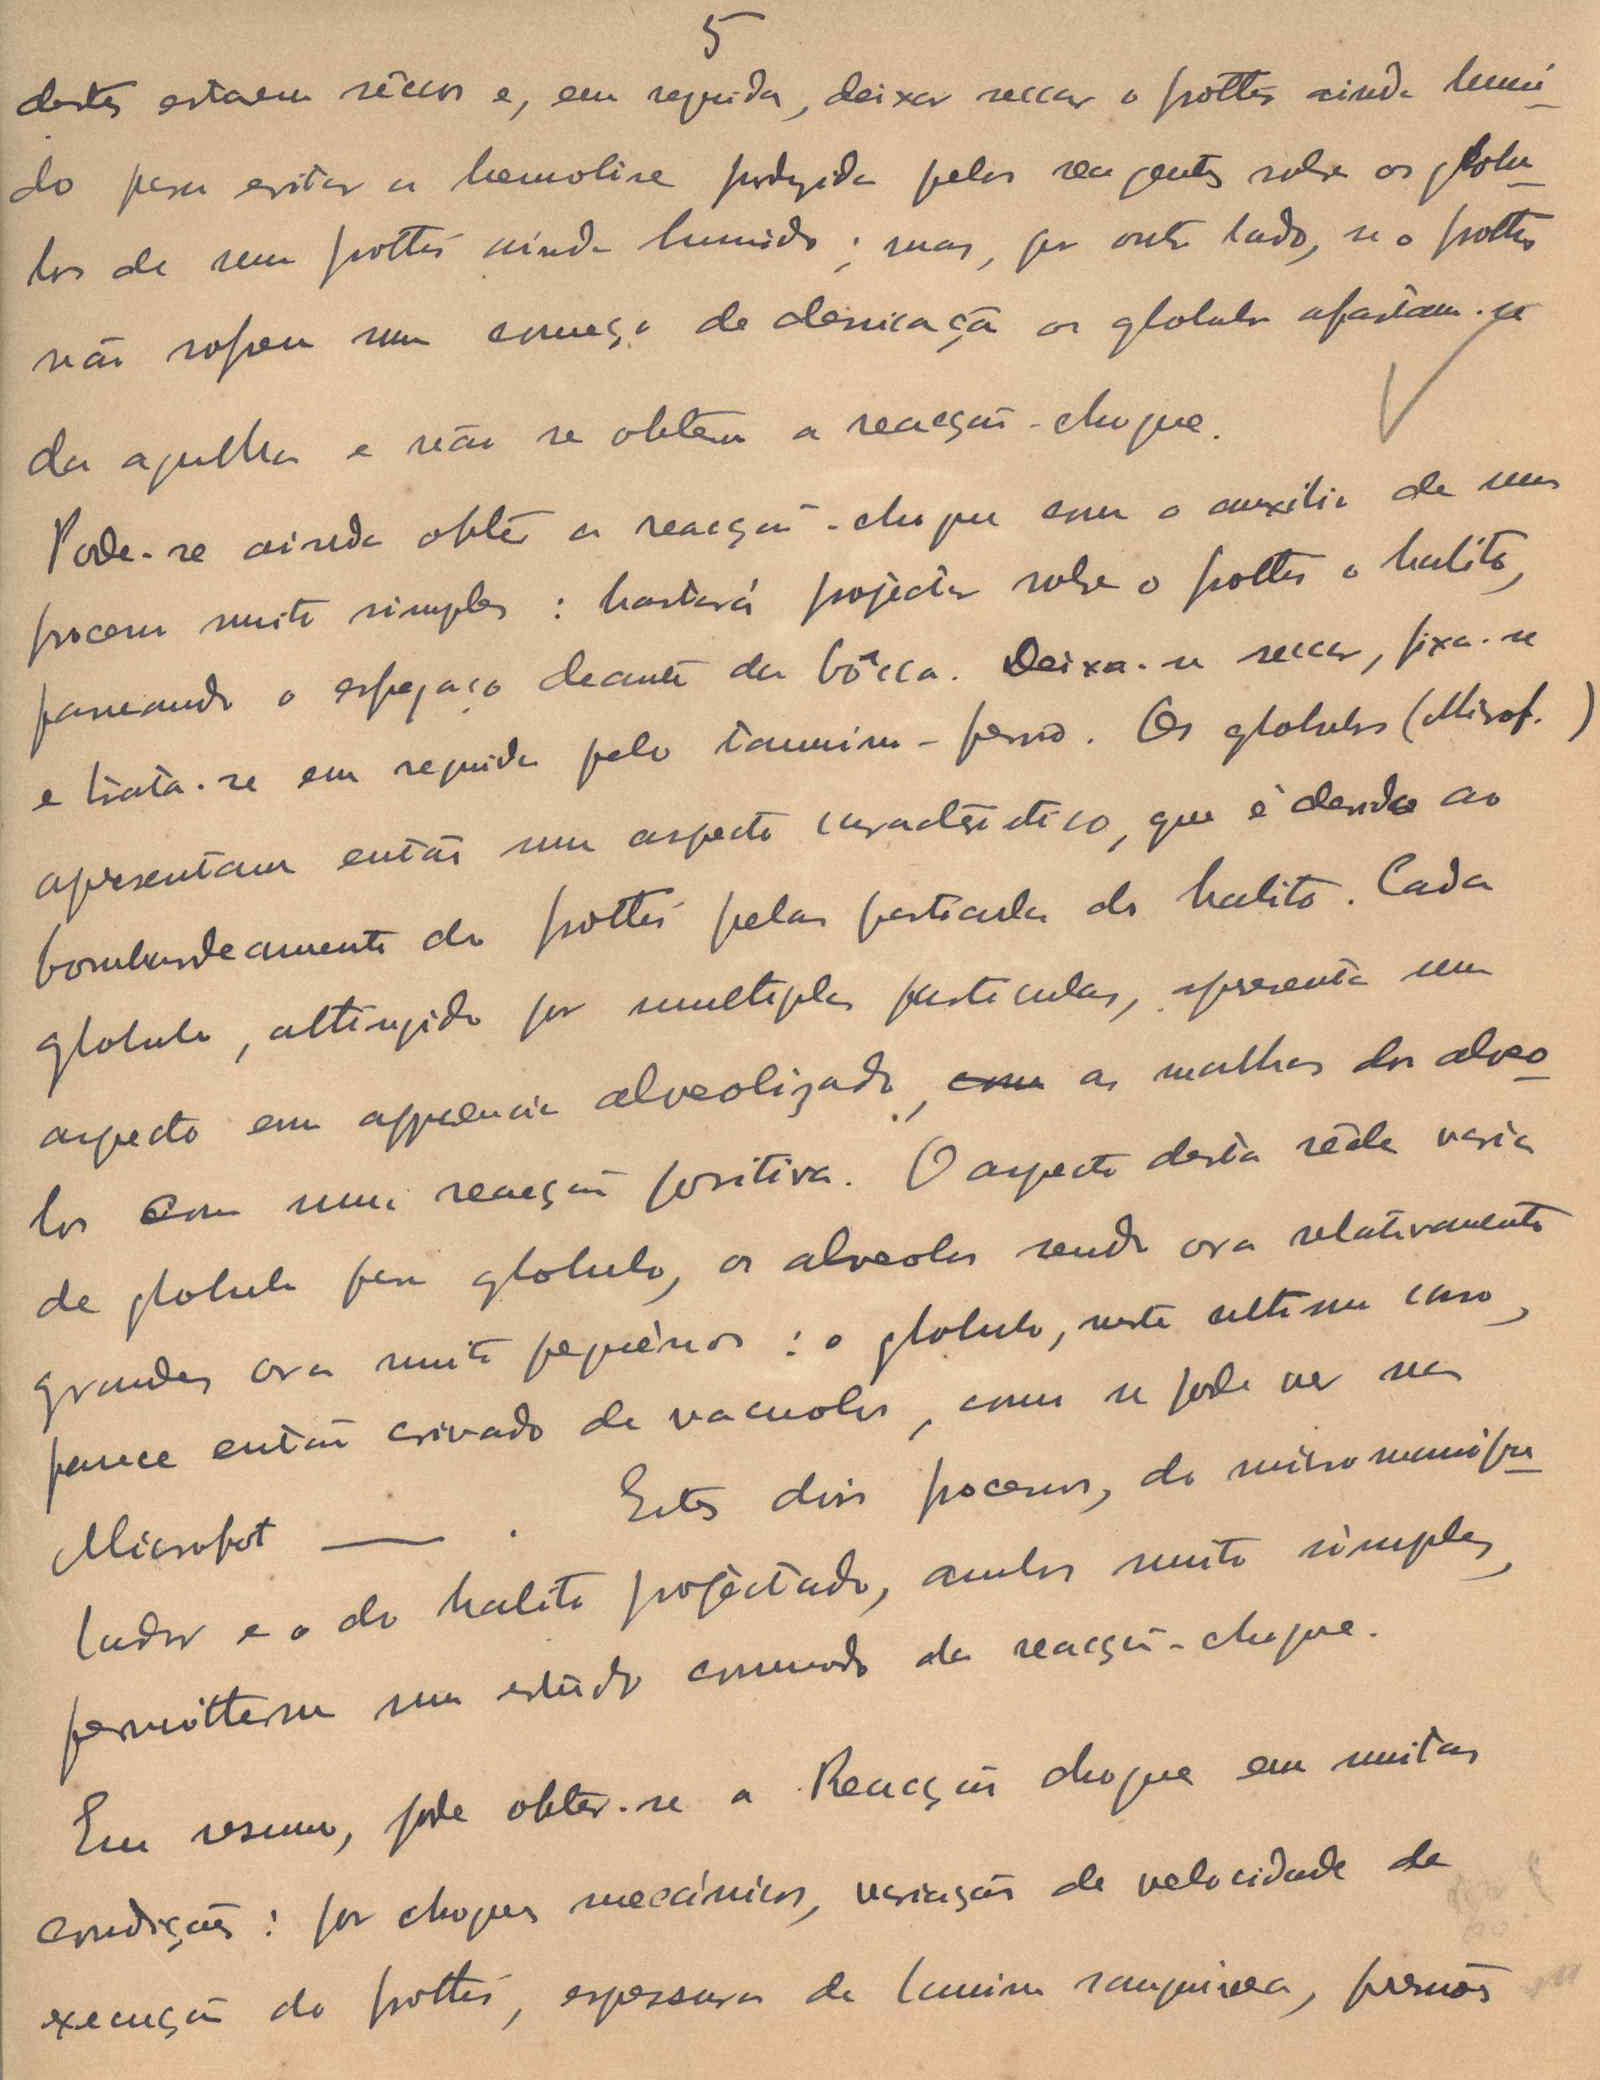 5
destes estarem sêccos e, em seguida, deixar seccar o frottis ainda humi-
do para evitar a hemolise produzida pelos reagentes sobre os globu-
los de um frottis ainda humido; mas, por outro lado, se o frottis
não soffreu um começo de dessicação os globulos afastam-se
da agulha e não se obtem a reacção-choque.
Pode-se ainda obter a reacção-choque com o auxilio de um
processo muito simples: bastará projectar sobre o frottis o halito,
passeando o esfregaço deante da bôcca. Deixa-se seccar, fixa-se
e trata-se em seguida pelo tannino-ferro. Os globulos (Microf. )
apresentam então um aspecto caracteristico, que é devido ao
bombardeamento do frottis pelas particulas do halito. Cada
globulo, attingido por multiplas particulas, apresenta um
aspecto em apparencia alveolizado, as malhas dos alveo-
los com uma reacção positiva. O aspecto desta rêde varia
de globulo para globulo, os alveolos sendo ora relativamente
grandes ora muito pequénos: o globulo, neste ultimo caso,
parece então crivado de vacuolos, como se pode ver na
Microfot —— . Estes dois processos, do micromanipu-
lador e o do halito projèctado, ambos muito simples,
permittem um estudo commodo da reacção-choque.
Em resumo, pode obter-se a Reacção choque em muitas
condições: por choques mecánicos, variação de velocidade de
execução do frottis, espessura da lamina sanguinea, pressão